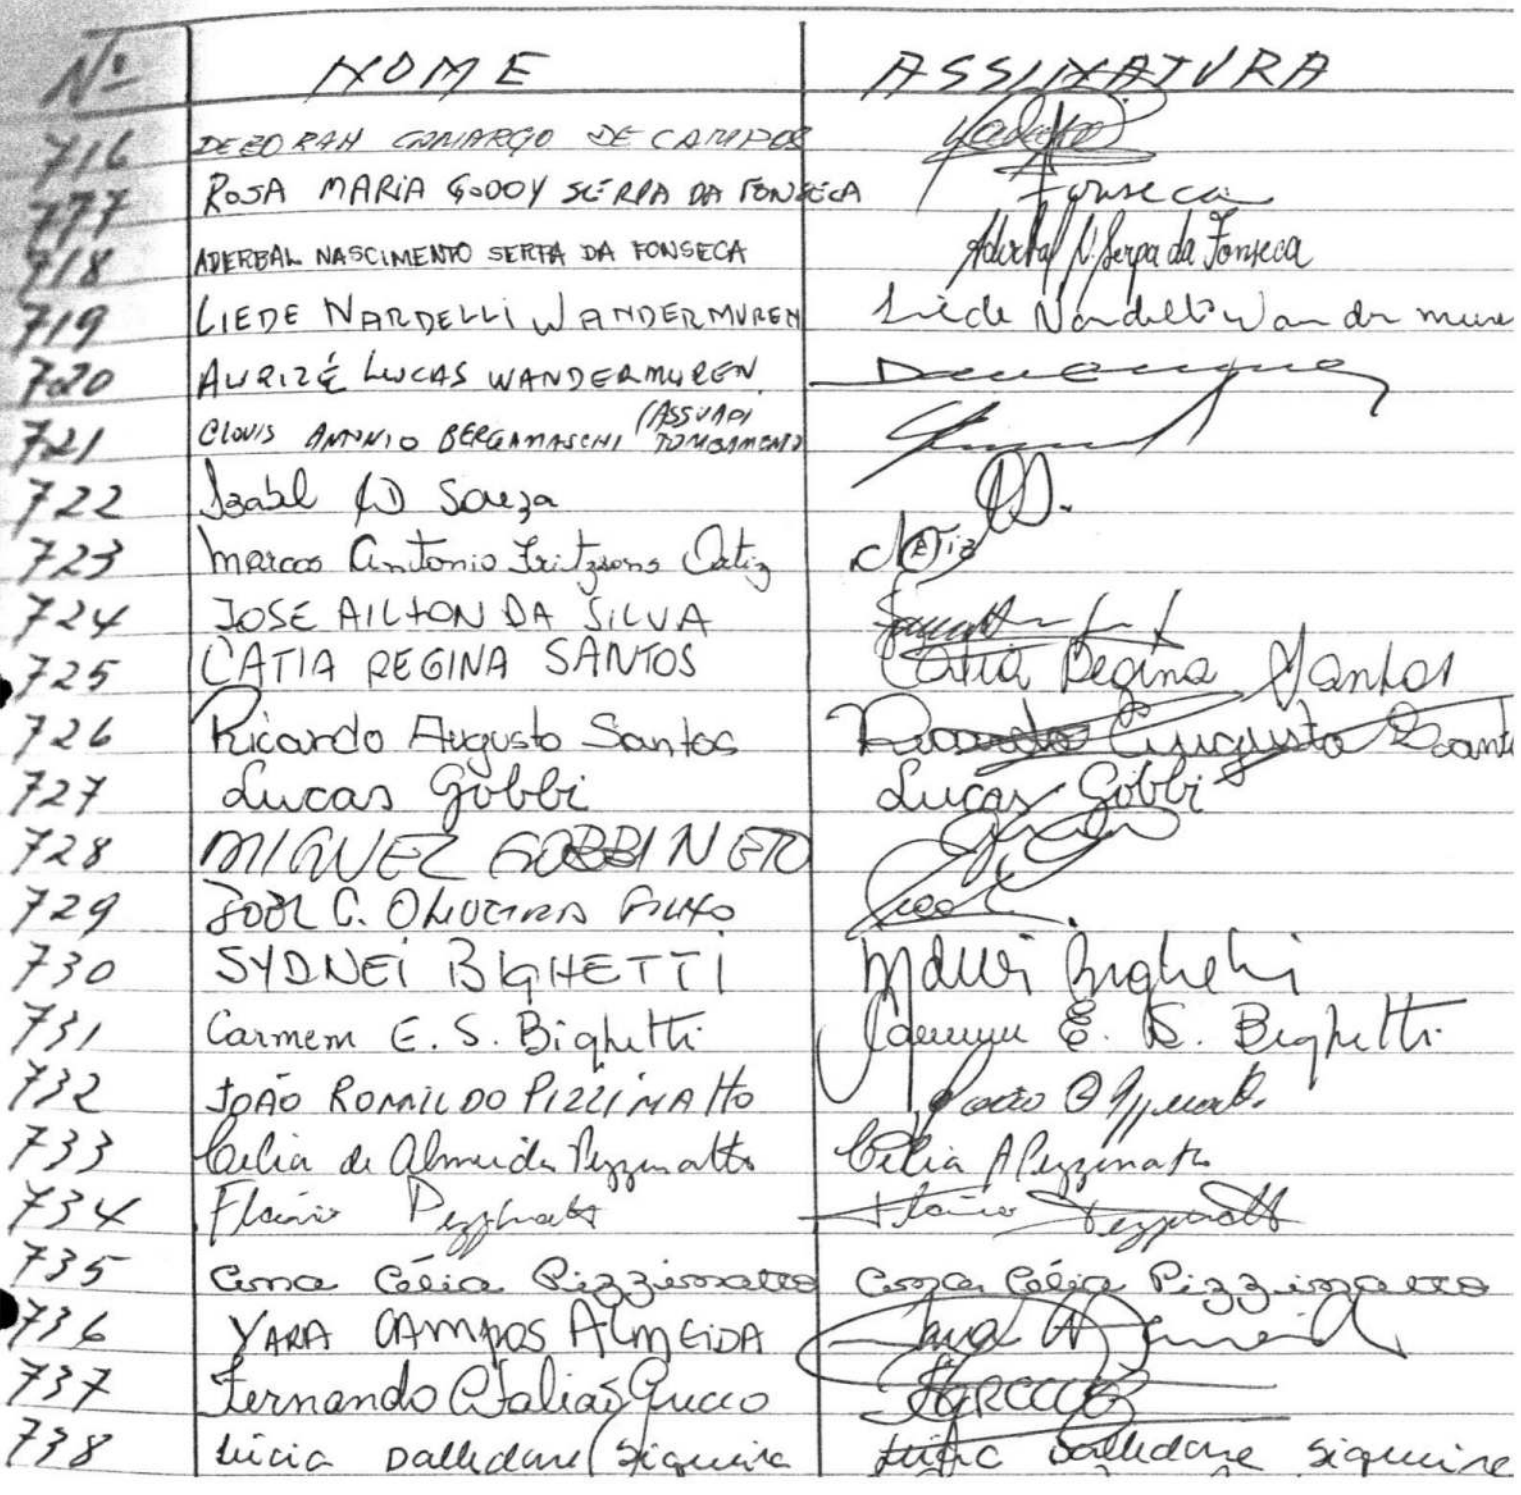 Nº NOME ASSINATURA
716 DEBORAH CAMARGO DE CAMPOS
717 ROSA MARIA GODOY SERPA DA FONSECA Fonseca
718 ADERBAL NASCIMENTO SERPA DA FONSECA Aderbal N. Serpa da Fonseca
719 LIEDE NARDELLI WANDERMUREN Liede Nardelli Wandermure
720 AURIZÉ LUCAS WANDERMUREN
721 CLOVIS ANTONIO BERGAMASCHI (ASSUAPI TOMBAMENTO)
722 Izabel D Souza
723 Marcos Antonio Fritzsons Ortiz Ortiz
724 JOSE AILTON DA SILVA
725 CATIA REGINA SANTOS Catia Regina Santos
726 Ricardo Augusto Santos Ricardo Augusto Sant
727 Lucas Gobbi Lucas Gobbi
728 MIGUEL GOBBI NETO
729 JOEL C. OLIVEIRA FILHO
730 SYDNEI BIGHETTI Bighetti
731 Carmem E. S. Bighetti Carmem E. S. Bighetti
732 JOÃO ROMILDO PIZZINATTO João
733 Célia de Almeida Pizzinatto Célia A Pizzinatto
734 Flávio Pizzinatto Flávio Pizzinatto
735 Ana Célia Pizzinatto Ana Célia Pizzinatto
736 YARA CAMPOS ALMEIDA
737 Fernando Gucco
738 Lúcia Dalledone Siqueira Lúcia Dalledone Siqueira